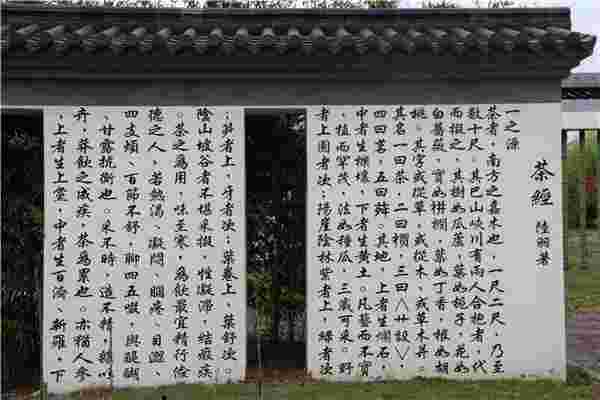 茶經 陸羽著
一之源
茶者，南方之嘉木也，一尺二尺，乃至
數十尺。其巴山峽川有兩人合抱者，伐
而掇之，其樹如瓜蘆，葉如梔子，花如
白薔薇，實如栟櫚，葉如丁香，根如胡
桃。其字或從草，或從木，或草木并。
其名一曰茶，二曰檟，三曰∧廿設∨，
四曰茗，五曰荈。其地，上者生爛石，
中者生櫟壤，下者生黃土。凡藝而不實
，植而罕茂，法如種瓜，三歲可采。野
者上園者次；陽崖陰林紫者上，綠者次
；筍者上，牙者次；葉卷上，葉舒次。
陰山坡谷者不堪采掇，性凝滯，結瘕疾
。茶之爲用，味至寒，爲飲最宜精行儉
德之人，若熱渴、凝悶、腦疼、目澀、
四支煩、百節不舒，聊四五啜，與醍醐
、甘露抗衡也。采不時，造不精，雜以
卉，莽飲之成疾，茶爲累也。亦猶人參
，上者生上黨，中者生百濟、新羅，下